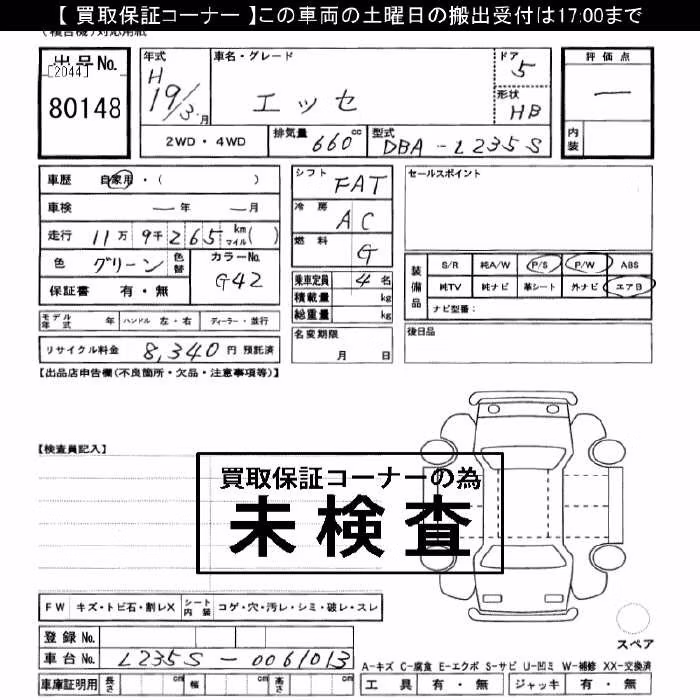 【 買取保証コーナー 】この車両の土曜日の搬出受付は17:00まで
出品No.
[2044]
80148
年式
H
19/3月
車名・グレード
エッセ
ドア
5
形状
HB
評価点
―
内装
2WD・4WD
排気量 660cc
型式 DBA-L235S
車歴 自家用・( )
車検 ―年 ―月
走行 11万9千265km マイル( )
色 グリーン 色替
カラーNo.
G42
保証書 有・無
シフト FAT
冷房 AC
燃料 G
乗車定員 4名
積載量 kg
総重量 kg
セールスポイント
装備品
S/R 純A/W P/S P/W ABS
純TV 純ナビ 革シート 外ナビ エアB
ナビ型番:
モデル年式 年 ハンドル 左・右 ディーラー・並行
名変期限
月 日
後日品
リサイクル料金 8,340円 預託済
【出品店申告欄(不良箇所・欠品・注意事項等)】
【検査員記入】
買取保証コーナーの為
未検査
FW キズ・トビ石・割レX シート内装 コゲ・穴・汚レ・シミ・破レ・スレ
登録No.
車台No. L235S-0061013
スペア
A-キズ C-腐食 E-エクボ S-サビ U-凹ミ W-補修 XX-交換済
車庫証明用 長さ cm 幅 cm 高さ cm
工具 有・無 ジャッキ 有・無